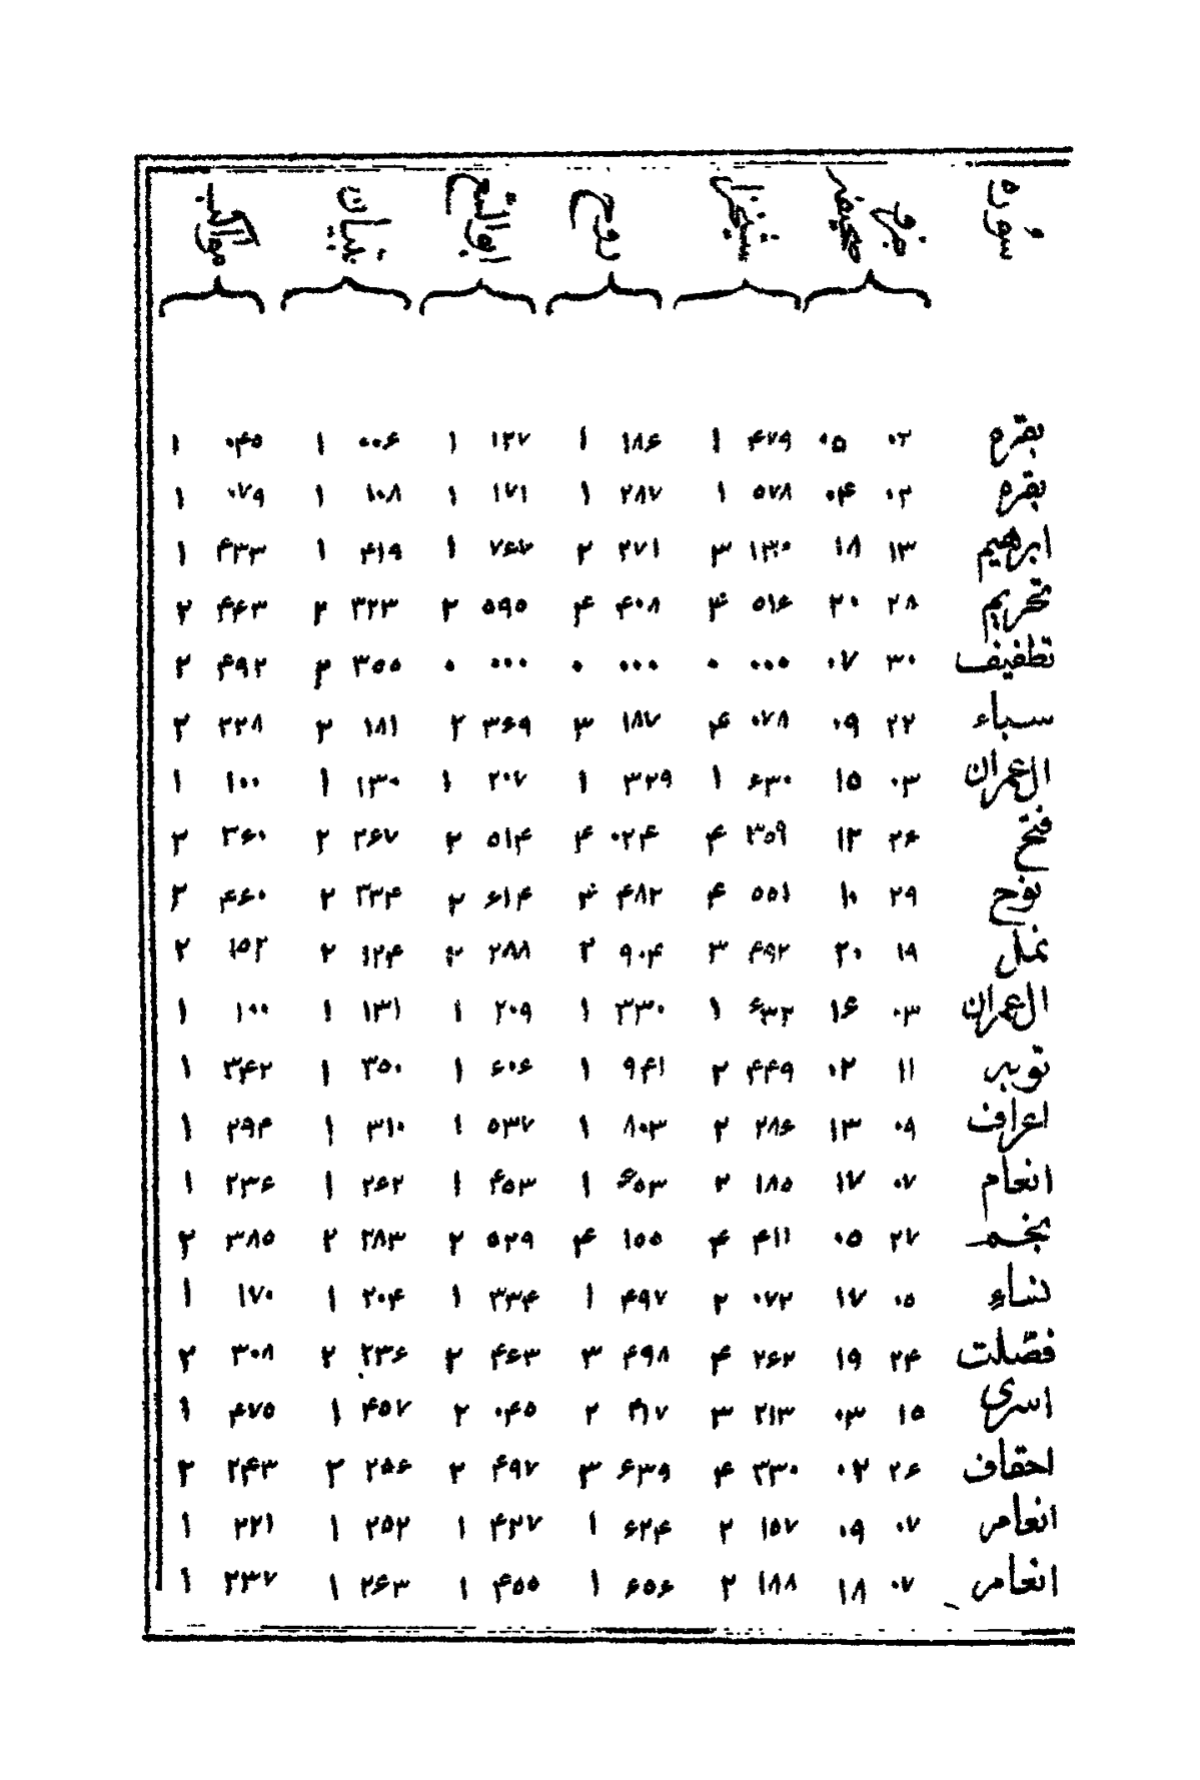 سوره جزو صحیفه شیخزاده روح ابو السعود تبیان مواکب
بقره ۰۲ ۰۵ ۴۷۹ ۱ ۱۸۶ ۱ ۱۲۷ ۱ ۰۰۶ ۱ ۰۴۵ ۱
بقره ۰۳ ۰۴ ۵۷۸ ۱ ۲۸۷ ۱ ۱۷۱ ۱ ۱۰۸ ۱ ۰۷۹ ۱
ابرهیم ۱۳ ۱۸ ۱۳۰ ۳ ۲۷۱ ۲ ۷۶۷ ۱ ۴۱۹ ۱ ۴۳۳ ۱
تحریم ۲۸ ۲۰ ۵۱۶ ۴ ۴۰۸ ۴ ۵۹۵ ۲ ۳۲۳ ۲ ۴۶۳ ۲
تطفیف ۳۰ ۰۷ ۰۰۰ ۰ ۰۰۰ ۰ ۰۰۰ ۰ ۳۵۵ ۲ ۴۹۲ ۲
سباء ۲۲ ۰۹ ۰۷۸ ۴ ۱۸۷ ۳ ۳۶۹ ۲ ۱۸۱ ۲ ۲۲۸ ۲
ال عمران ۰۳ ۱۵ ۶۳۰ ۱ ۳۲۹ ۱ ۲۰۷ ۱ ۱۳۰ ۱ ۱۰۰ ۱
فتح ۲۶ ۱۲ ۳۵۹ ۴ ۰۲۴ ۴ ۵۱۴ ۲ ۲۶۷ ۲ ۳۶۰ ۲
نوح ۲۹ ۱۰ ۵۵۱ ۴ ۴۸۲ ۴ ۶۱۴ ۲ ۳۳۴ ۲ ۴۶۰ ۲
نمل ۱۹ ۲۰ ۴۹۲ ۳ ۹۰۴ ۲ ۲۸۸ ۲ ۱۲۴ ۲ ۱۵۲ ۲
ال عمران ۰۳ ۱۶ ۶۳۲ ۱ ۳۳۰ ۱ ۲۰۹ ۱ ۱۳۱ ۱ ۱۰۰ ۱
توبه ۱۱ ۰۲ ۴۴۹ ۲ ۹۴۱ ۱ ۶۰۶ ۱ ۳۵۰ ۱ ۳۴۲ ۱
اعراف ۰۹ ۱۳ ۲۸۶ ۲ ۸۰۳ ۱ ۵۳۷ ۱ ۳۱۰ ۱ ۲۹۴ ۱
انعام ۰۷ ۱۷ ۱۸۵ ۲ ۶۵۳ ۱ ۴۵۳ ۱ ۲۶۲ ۱ ۲۳۶ ۱
نجم ۲۷ ۰۵ ۴۱۱ ۴ ۱۵۵ ۴ ۵۲۹ ۲ ۲۸۳ ۲ ۳۸۵ ۲
نساء ۰۵ ۱۷ ۰۷۲ ۲ ۴۹۷ ۱ ۳۳۴ ۱ ۲۰۴ ۱ ۱۷۰ ۱
فصلت ۲۴ ۱۹ ۲۶۲ ۴ ۴۹۸ ۳ ۴۶۳ ۲ ۲۳۶ ۲ ۳۰۸ ۲
اسری ۱۵ ۰۳ ۲۱۳ ۳ ۴۱۷ ۲ ۰۴۵ ۲ ۴۵۷ ۱ ۴۷۵ ۱
احقاف ۲۶ ۰۲ ۳۳۰ ۴ ۶۳۹ ۳ ۴۹۷ ۲ ۲۵۶ ۲ ۲۴۳ ۲
انعام ۰۷ ۰۹ ۱۵۷ ۲ ۶۲۴ ۱ ۴۳۷ ۱ ۲۵۲ ۱ ۲۲۱ ۱
انعام ۰۷ ۱۸ ۱۸۸ ۲ ۶۵۶ ۱ ۴۵۵ ۱ ۲۶۳ ۱ ۲۳۷ ۱